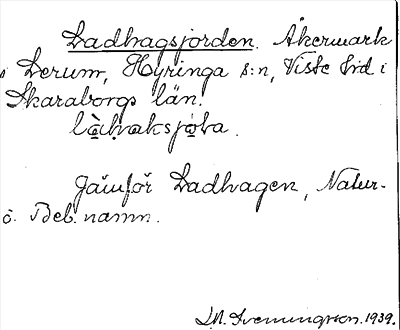 Ladhagsjorden. Åkermark
i Lerum, Hyringa s:n, Viste hd i
Skaraborgs län.
Jämför Ladhagen, Natur-
o. Beb. namn.
1939.